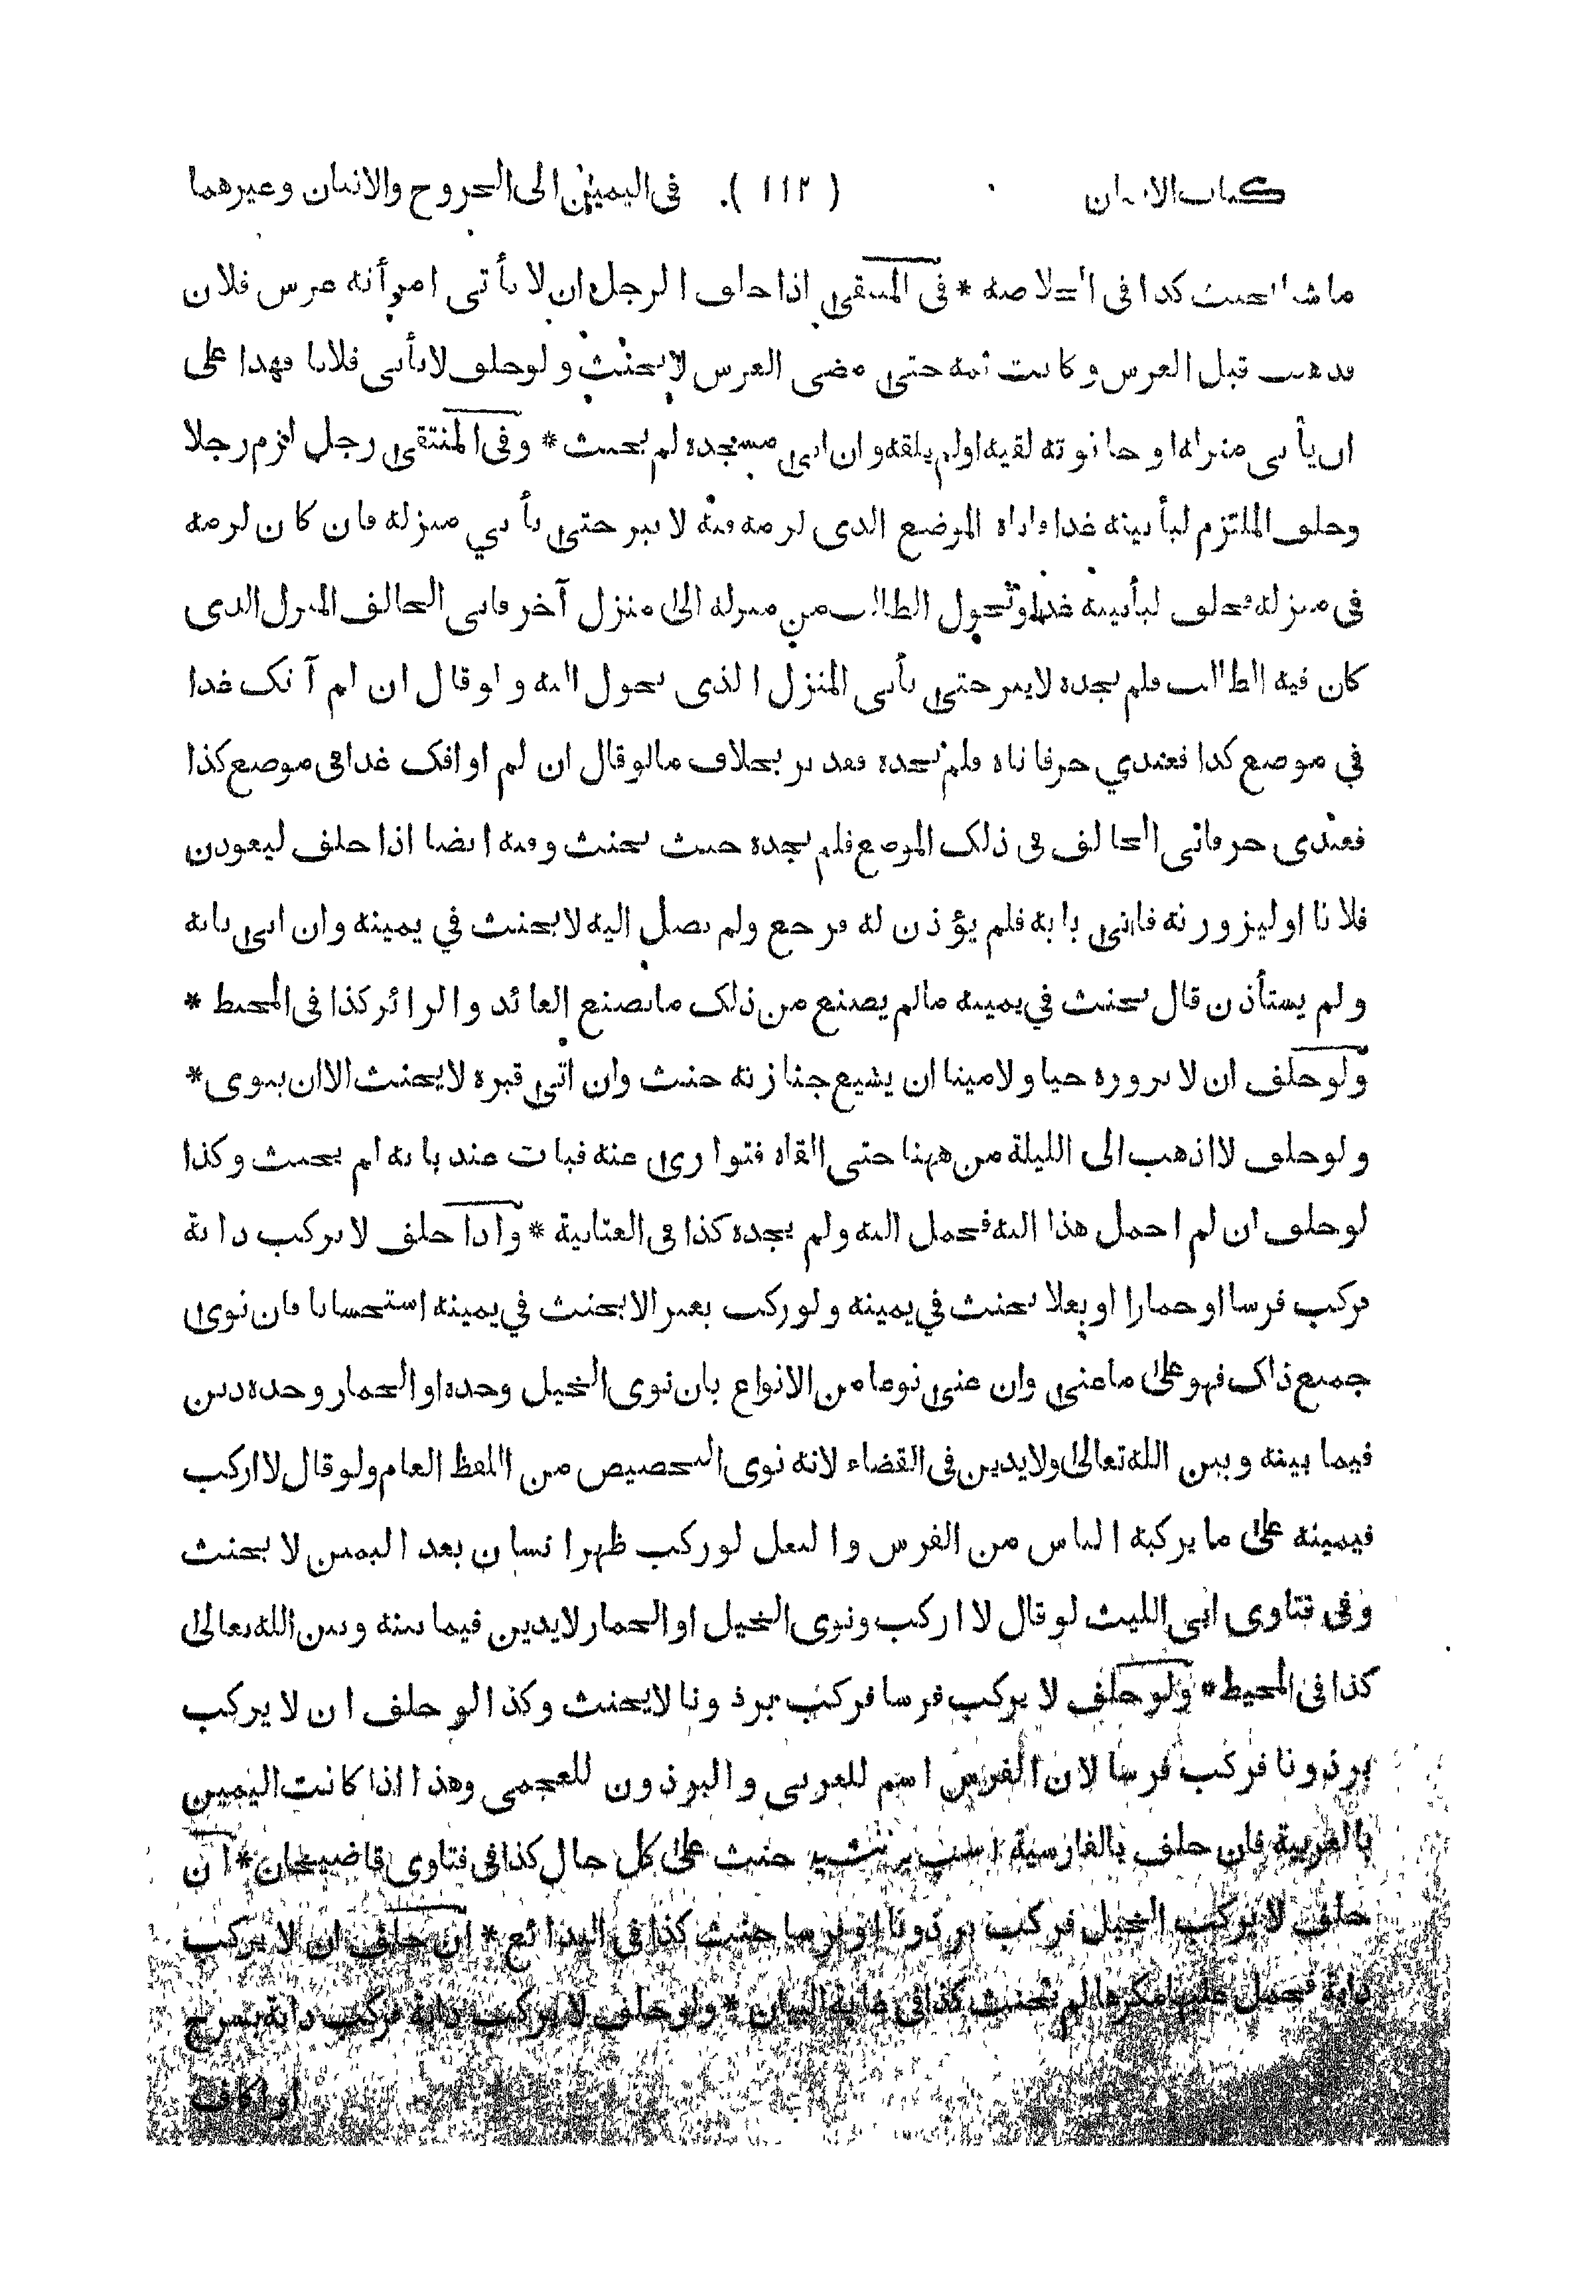 كتاب الايمان ( ١١٢ ) في اليمين الى الخروج والاتيان وغيرهما
ماشيا يحنث كذا في الخلاصة * في المنتقى اذا حلف الرجل ان لا تأتى امرأته عرس فلان
فذهبت قبل العرس وكانت ثمه حتى مضى العرس لا يحنث ولوحلف لايأتى فلانا فهذا على
ان يأتى منزله او حانوته لقيه اولم يلقه وان اتى مسجده لم يحنث * وفى المنتقى رجل لزم رجلا
وحلف الملتزم ليأتينه غدا فاتاه الموضع الذى لزمه فيه لا يبر حتى يأتي منزله فان كان لزمه
فى منزله فحلف ليأتينه غدا وتحول الطالب من منزله الى منزل آخر فاتى الحالف المنزل الذى
كان فيه الطالب فلم يجده لايبر حتى يأتى المنزل الذى تحول اليه ولوقال ان لم آتك غدا
في موضع كذا فعبدي حر فاتاه فلم يجده فقد بر بخلاف مالوقال ان لم اوافك غدا فى موضع كذا
فعبدى حر فاتى الحالف فى ذلك الموضع فلم يجده حيث يحنث وفيه ايضا اذا حلف ليعودن
فلانا اوليزورنه فاتى بابه فلم يؤذن له فرجع ولم يصل اليه لايحنث في يمينه وان اتى بابه
ولم يستأذن قال يحنث في يمينه مالم يصنع من ذلك مايصنع العائد والزائر كذا فى المحيط *
ولوحلف ان لا يزوره حيا ولاميتا ان يشيع جنازته حنث وان اتى قبره لايحنث الاان ينوى *
ولوحلف لااذهب الى الليلة من ههنا حتى القاه فتوارى عنه فبات عند بابه لم يحنث وكذا
لوحلف ان لم احمل هذا اليه فحمل اليه ولم يجده كذا فى العتابية * واذا حلف لا يركب دابة
فركب فرسا اوحمارا اوبغلا يحنث في يمينه ولوركب بعيرا لايحنث في يمينه استحسانا فان نوى
جميع ذلك فهو على ماعنى وان عنى نوعا من الانواع بان نوى الخيل وحده او الحمار وحده دين
فيما بينه وبين الله تعالى ولايدين فى القضاء لانه نوى التخصيص من اللفظ العام ولوقال لااركب
فيمينه على مايركبه الناس من الفرس والبغل لوركب ظهر انسان بعد اليمين لا يحنث
وفى فتاوى ابى الليث لوقال لا اركب ونوى الخيل او الحمار لايدين فيما بينه وبين الله تعالى
كذا فى المحيط * ولوحلف لا يركب فرسا فركب برذونا لايحنث وكذا لو حلف ان لا يركب
برذونا فركب فرسا لان الفرس اسم للعربى والبرذون للعجمى وهذا اذا كانت اليمين
بالعربية فان حلف بالفارسية اسب برننشيد حنث على كل حال كذا فى فتاوى قاضيخان * ان
حلف لا يركب الخيل فركب برذونا او فرسا حنث كذا فى البدائع * ان حلف ان لا يركب
دابة فحمل عليها مكرها لم يحنث كذا فى غاية البيان * ولوحلف لا يركب دابة فركب دابة بسرج
او اكاف